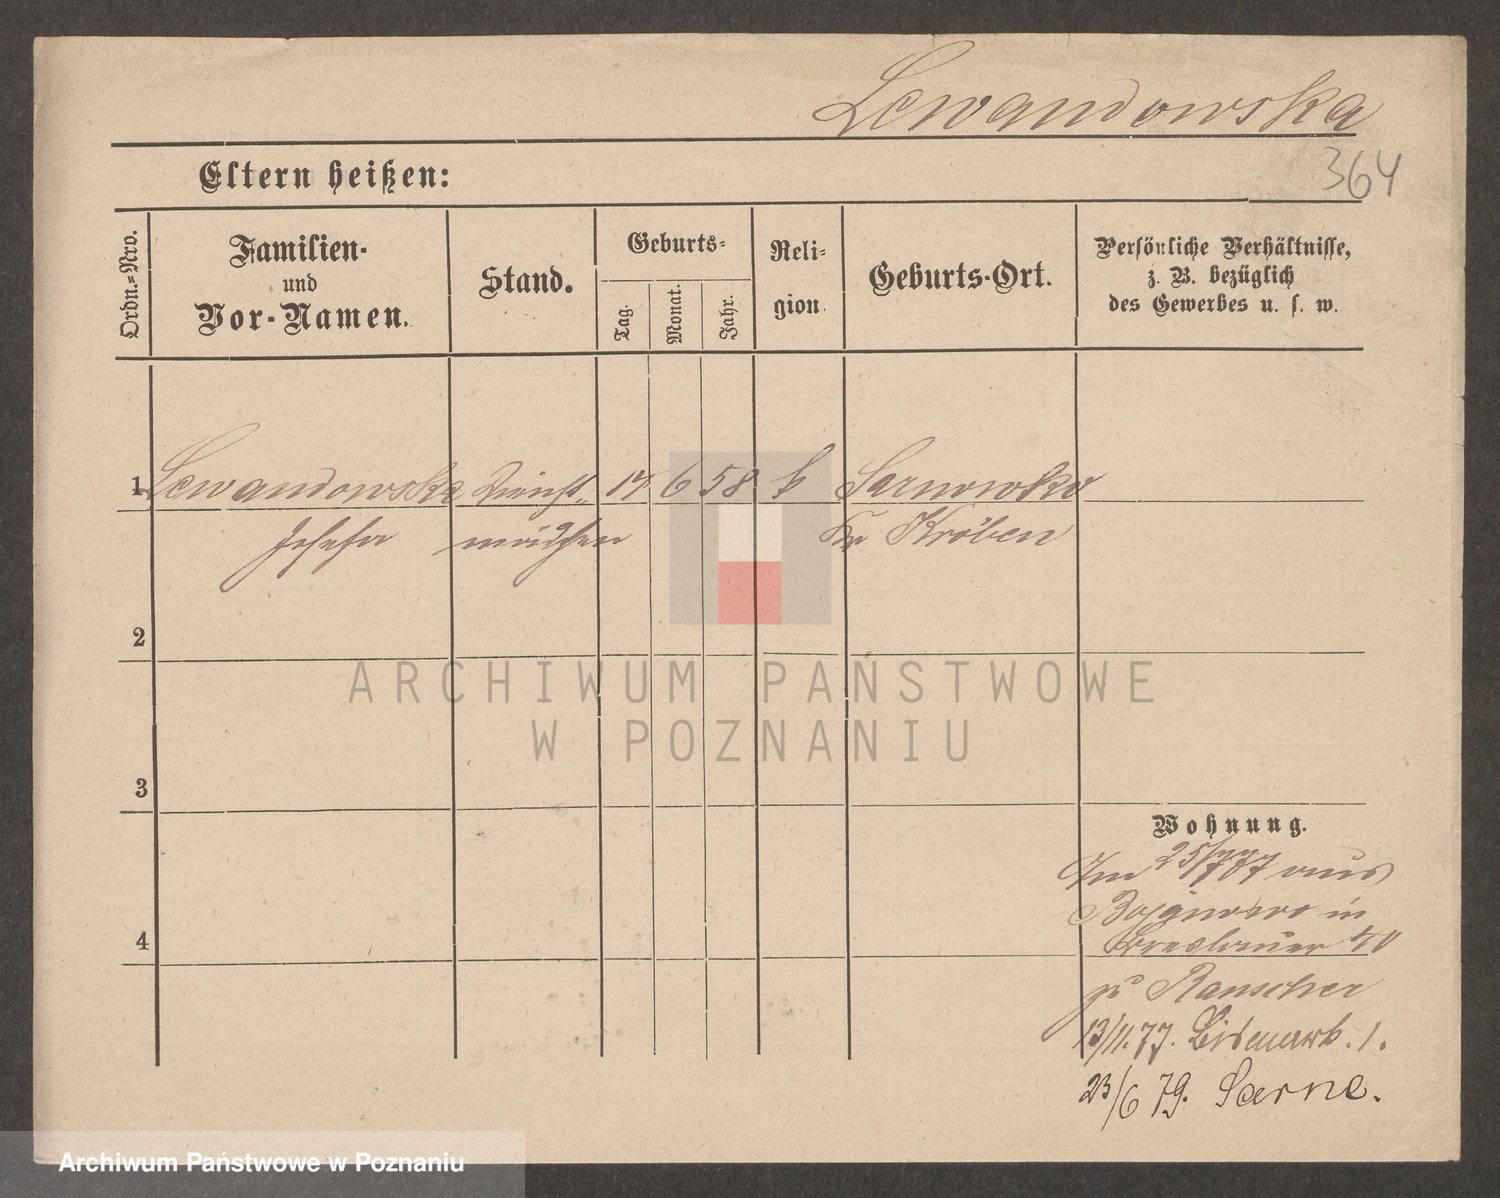 Lewandowska
364
Eltern heißen:
Ordn.-Nro.
Familien-
und
Vor-Namen.
Stand.
Geburts-
Tag.
Monat.
Jahr.
Reli-
gion.
Geburts-Ort.
Persönliche Verhältnisse,
z. B. bezüglich
des Gewerbes u. s. w.
1 Lewandowska Dienst- 17 6 58 k Sarnowko
Josefa mädchen Kr Kröben
2
3
4
Wohnung.
Im 25/7 77 aus
in
Breslauer 40
zu Rauscher
13/11.77. Bismark. 1.
23/6 79. Sarne.
ARCHIWUM PAŃSTWOWE
W POZNANIU
Archiwum Państwowe w Poznaniu